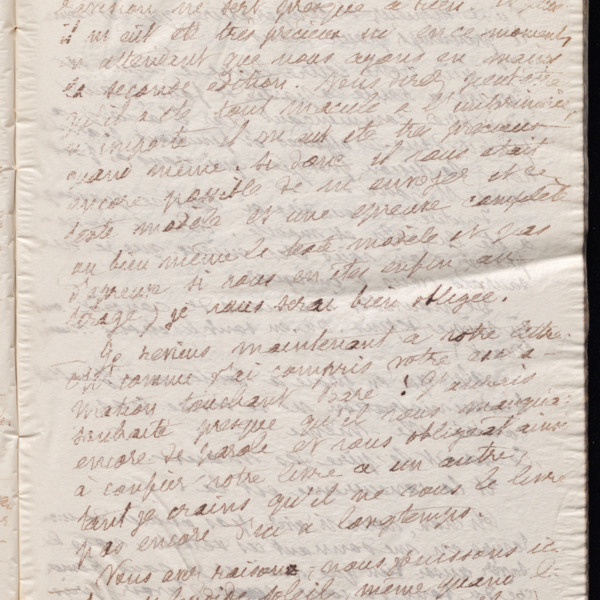 ne sert presque à rien.
il m'eût été très précieux en ce moment,
en attendant que nous ayons en mains
la seconde édition. Vous direz peut-être
qu'il a été tout maculé à l'imprimerie,
n'importe il m'eut été très précieux
quand même. Si donc il vous était
encore possible de m'envoyer et ce
texte modèle et une épreuve complète
ou bien même le texte modèle et pas
d'épreuve si vous en êtes enfin au
tirage, je vous serai bien obligée.
Je reviens maintenant à votre lettre.
oh! comme j'ai compris votre
touchant ! J'aurais
souhaité presque qu'il vous manquât
encore de parole et vous obligeat ainsi
à confier notre livre à un autre,
tant je crains qu'il ne nous le livre
pas encore d'ici à longtemps.
Vous avez raison, nous jouissons ici
soleil, même quand